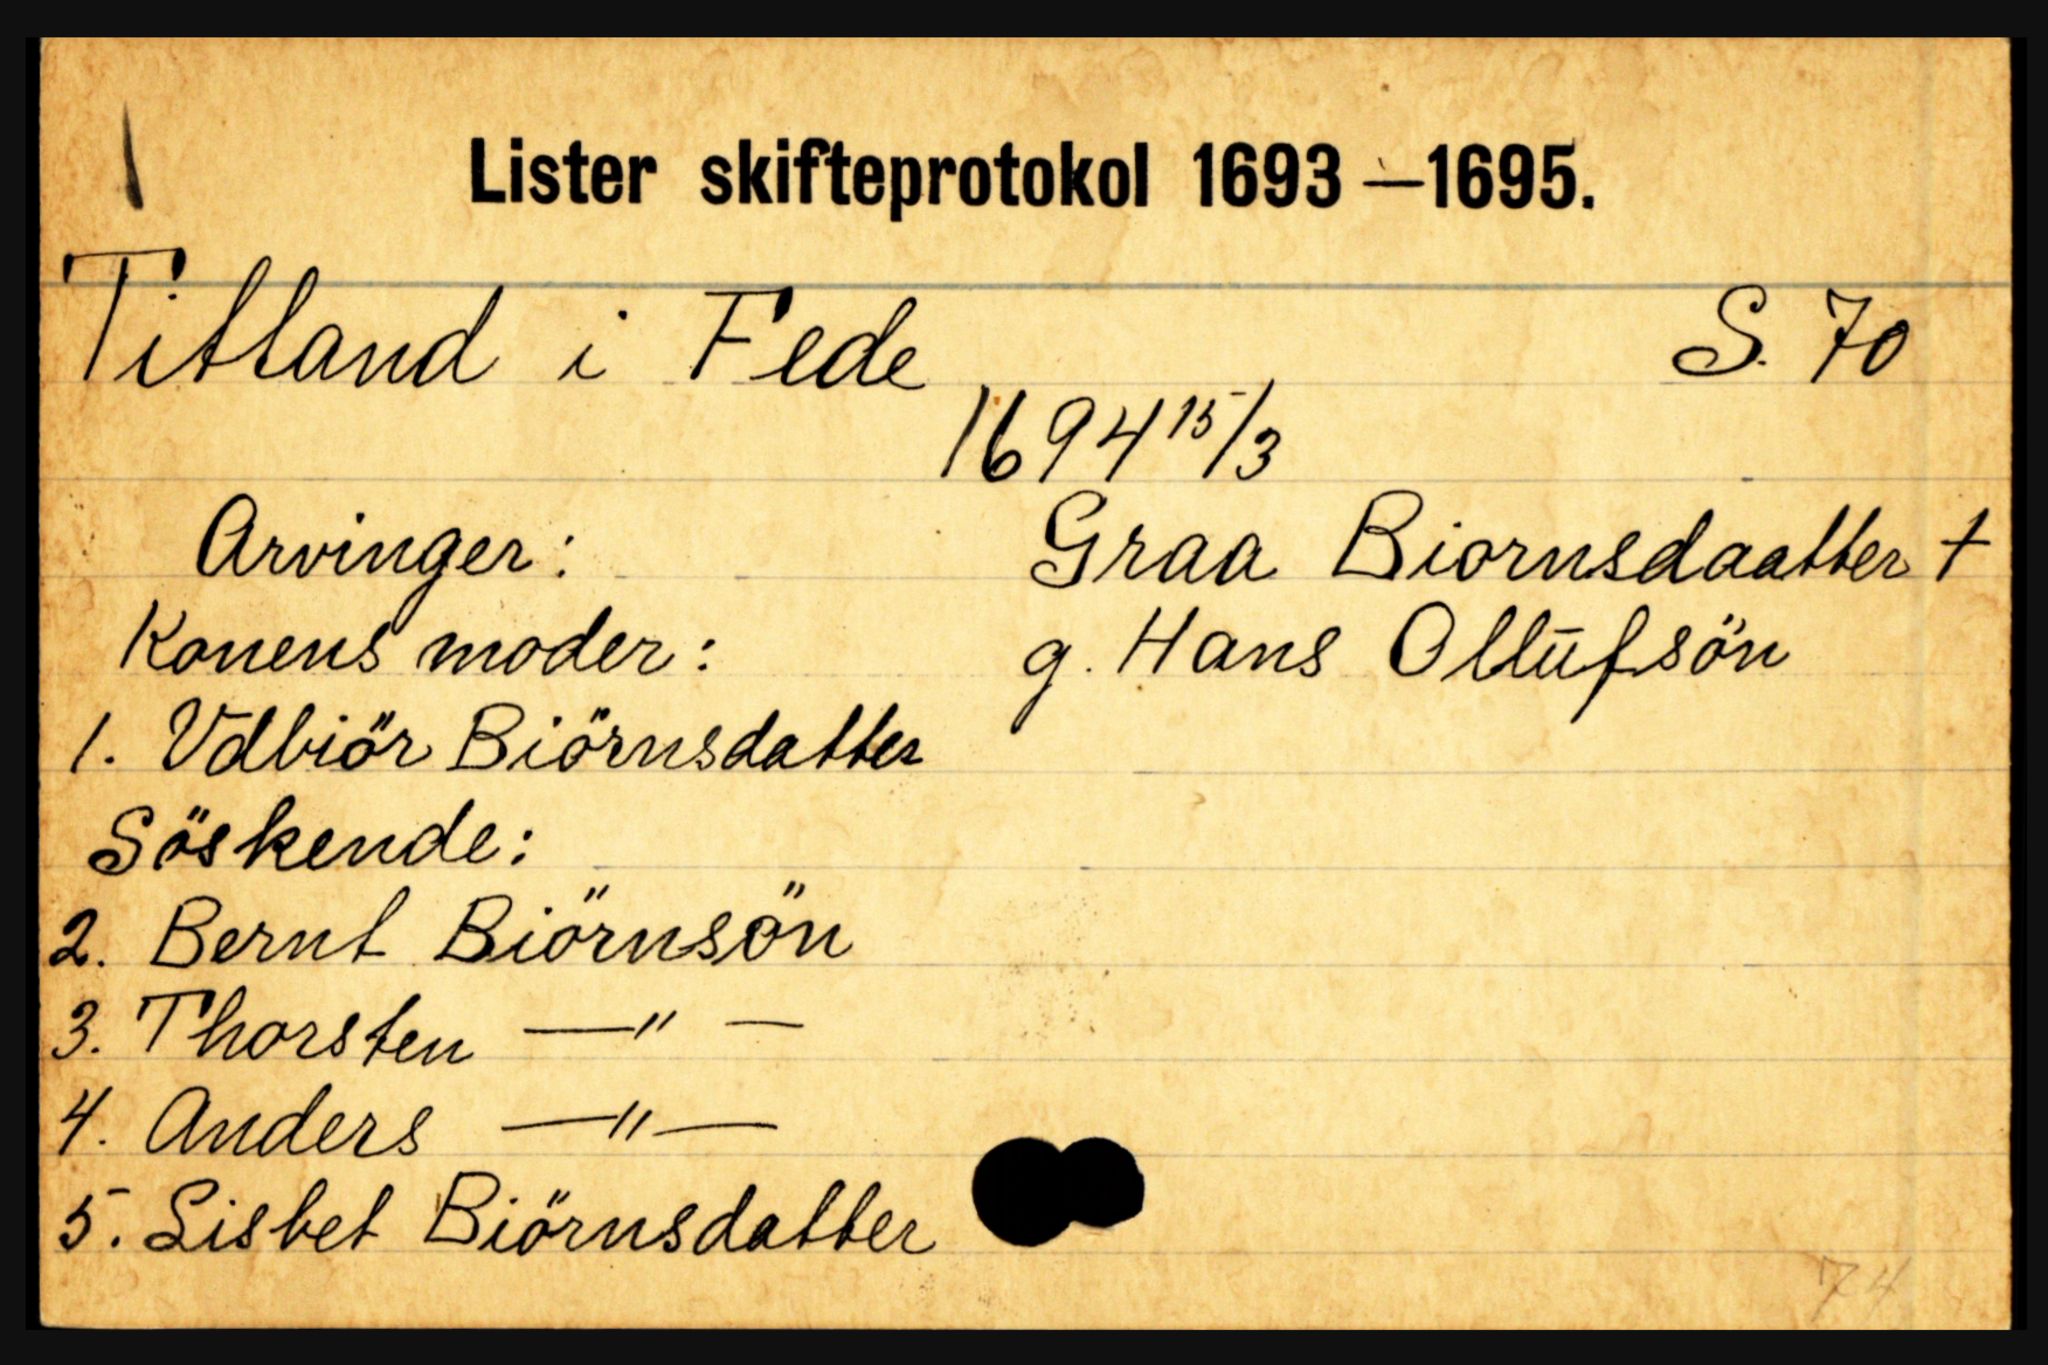 1
Lister skifteprotokol 1693—1695.
Titland i Fede S. 70
1694 15/3
Arvinger: Graa Biornsdaatter †
Konens moder: g. Hans Ollūfsön
1. Vdbiör Biörnsdatter
Söskende:
2. Bernt Biörnsön
3. Thorsten —"—
4. Anders —"—
5. Lisbet Biörnsdatter
74